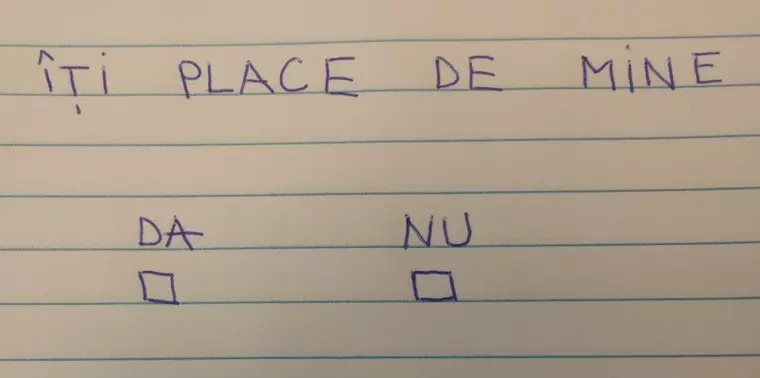 ÎȚI PLACE DE MINE
DA NU